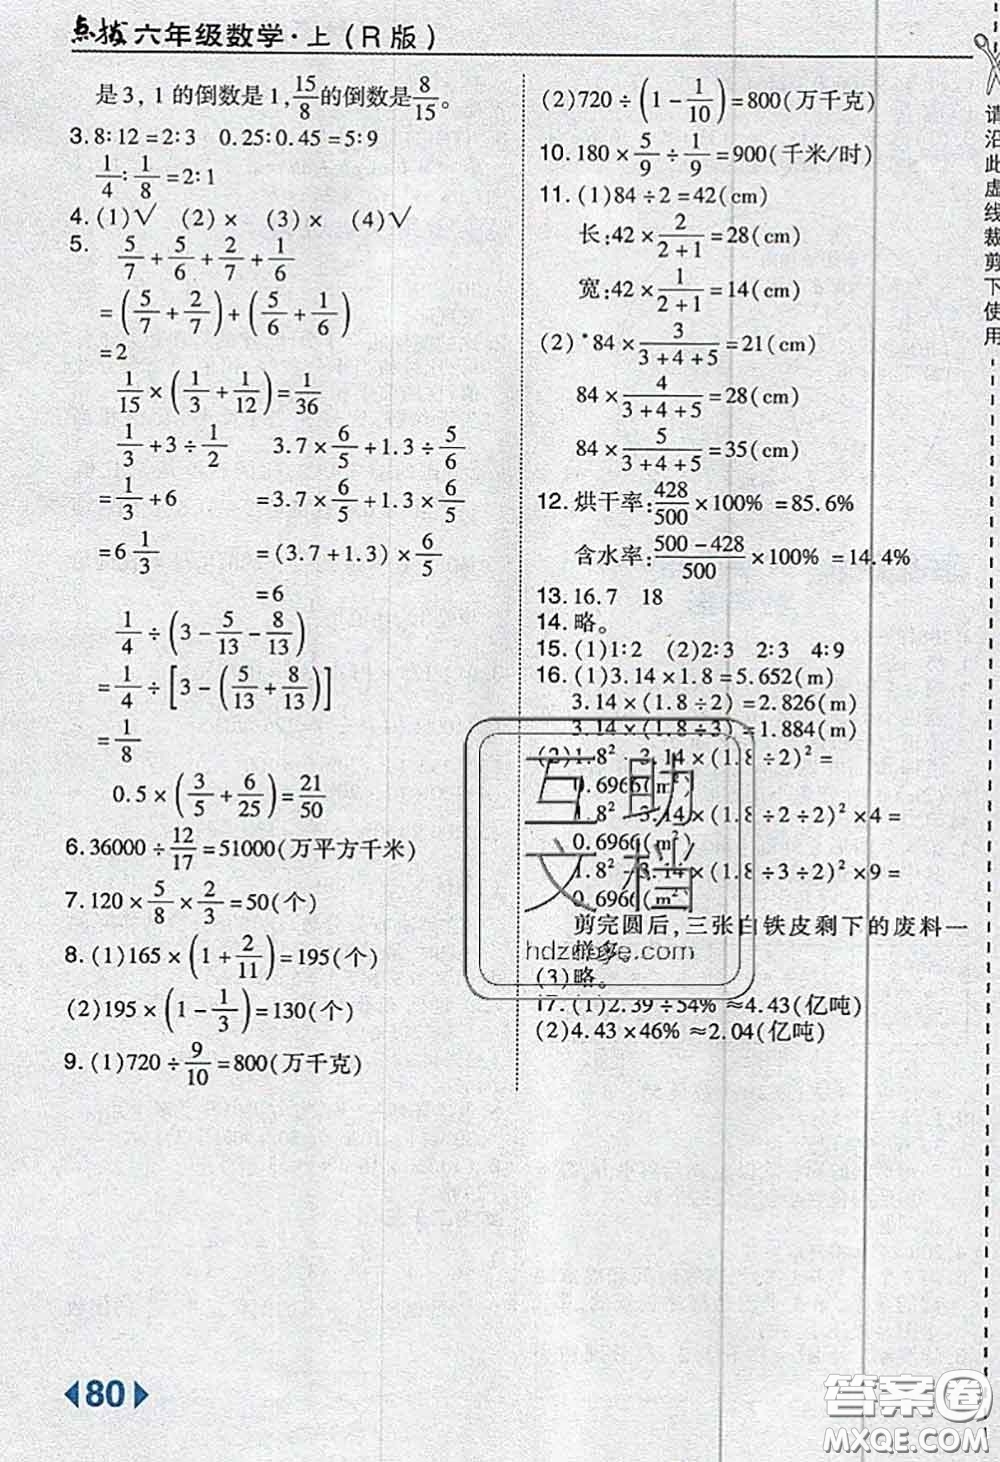 点拨 六年级数学·上(R版)
是3, 1的倒数是1, 15/8的倒数是8/15。
3. 8∶12=2∶3 0.25∶0.45=5∶9
1/4∶1/8=2∶1
4. (1)√ (2)× (3)× (4)√
5. 5/7+5/6+2/7+1/6
=(5/7+2/7)+(5/6+1/6)
=2
1/15×(1/3+1/12)=1/36
1/3+3÷1/2 3.7×6/5+1.3÷5/6
=1/3+6 =3.7×6/5+1.3×6/5
=6 1/3 =(3.7+1.3)×6/5
=6
1/4÷(3-5/13-8/13)
=1/4÷[3-(5/13+8/13)]
=1/8
0.5×(3/5+6/25)=21/50
6. 36000÷12/17=51000(万平方千米)
7. 120×5/8×2/3=50(个)
8. (1)165×(1+2/11)=195(个)
(2)195×(1-1/3)=130(个)
9. (1)720÷9/10=800(万千克)
(2)720÷(1-1/10)=800(万千克)
10. 180×5/9÷1/9=900(千米/时)
11. (1)84÷2=42(cm)
长:42×2/(2+1)=28(cm)
宽:42×1/(2+1)=14(cm)
(2)84×3/(3+4+5)=21(cm)
84×4/(3+4+5)=28(cm)
84×5/(3+4+5)=35(cm)
12. 烘干率:428/500×100% =85.6%
含水率:(500-428)/500×100% =14.4%
13. 16.7 18
14. 略。
15. (1)1∶2 (2)2∶3 2∶3 4∶9
16. (1)3.14×1.8=5.652(m)
3.14×(1.8÷2)=2.826(m)
3.14×(1.8÷3)=1.884(m)
(2)1.8²-3.14×(1.8÷2)²=
0.6966(m²)
1.8²-3.14×(1.8÷2÷2)²×4=
0.6966(m²)
1.8²-3.14×(1.8÷3÷2)²×9=
0.6966(m²)
剪完圆后,三张白铁皮剩下的废料一
样多。
(3)略。
17. (1)2.39÷54% ≈4.43(亿吨)
(2)4.43×46% ≈2.04(亿吨)
请沿此虚线裁剪下使用
互助文档
80
答案圈
MXQE.COM